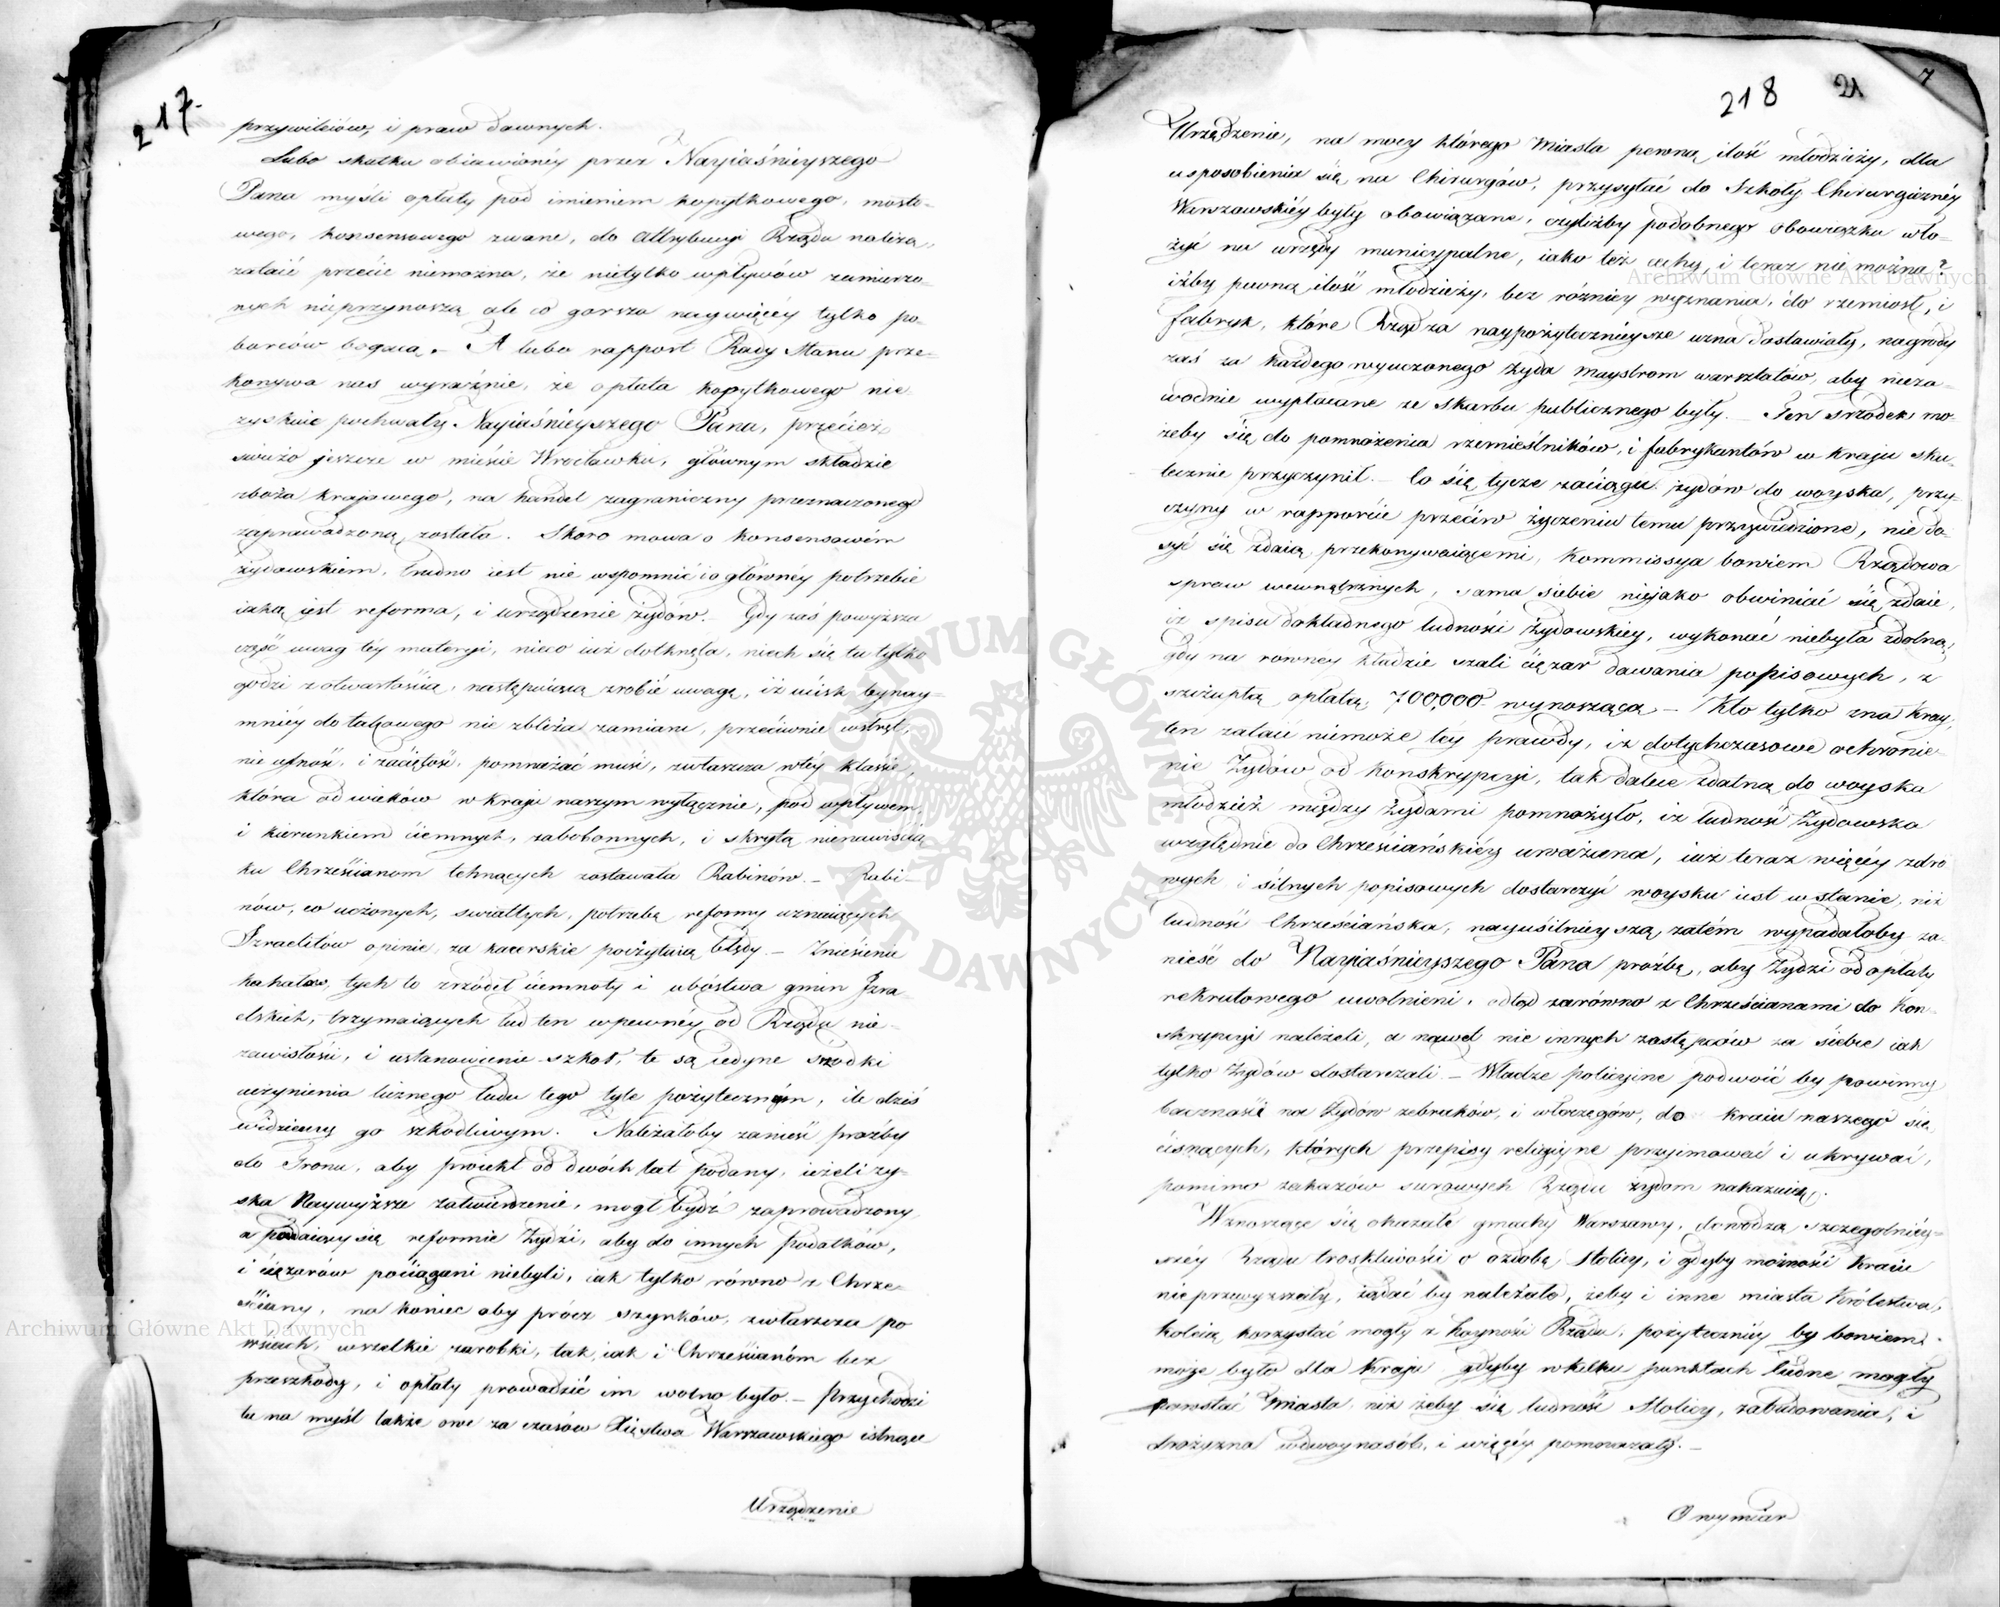 217.
przywileiów, i praw dawnych.
Lubo skutku obiawionéy przez Nayiaśnieyszego
Pana myśli opłaty pod imieniem kopytkowego, mosto-
wego, konsensowego zwane, do Attrybucyi Rządu należą,
zataić przecie niemożna, że nietylko wpływów zamierzo-
nych nieprzynoszą ale co gorsza naywięcéy tylko po-
borców bogacą. – A lubo rapport Rady Stanu prze-
konywa nas wyraźnie, że opłata kopytkowego nie
zyskuie pochwały Nayiaśnieyszego Pana, przecież
świeżo jeszcze w mieście Wrocławku, głównym składzie
zboża kraiowego, na handel zagraniczny przeznaczonego
zaprowadzoną została. Skoro mowa o konsensowém
żydowskiem, trudno iest nie wspomnieć i o głównéy potrzebie
iaką iest reforma, i urządzenie żydów. – Gdy zaś powyższa
część uwag téy materyi, nieco iuż dotknęła, niech się tu tylko
godzi z otwartością, następuiącą zrobić uwagę, iż ucisk bynay-
mniéy do takowego nie zbliża zamiaru, przeciwnie wstręt,
nieufność, i zaciętość, pomnażać musi, zwłaszcza w téy klassie,
która od wieków w kraju naszym wyłącznie, pod wpływem
i kierunkiem ciemnych, zabobonnych, i skrytą nienawiścią
ku Chrześcianom tchnących zostawała Rabinów. – Rabi-
nów, co uczonych, światłych, potrzebę reformy uznaiących
Izraelitów opinie, za kacerskie poczytuią błędy. – Zniesienie
kahałów, tych to źródeł ciemnoty i ubóstwa gmin Izra-
elskich, trzymaiących lud ten w pewnéy od Rządu nie-
zawisłości, i ustanowienie szkół, te są iedyne środki
uczynienia licznego ludu tego tyle pożytecznym, ile dziś
widziemy go szkodliwym. Należałoby zanieść prośby
do Tronu, aby proiekt od dwóch lat podany, ieżeli zy-
ska Naywyższe zatwierdzenie, mógł bydź zaprowadzony
a poddaiący się reformie Żydzi, aby do innych podatków,
i ciężarów pociągani niebyli, iak tylko równo z Chrze-
ściany, na koniec aby prócz szynków, zwłaszcza po
wsiach, wszelkie zarobki, tak iak i Chrześcianom bez
przeszkody, i opłaty prowadzić im wolno było. – Przychodzi
tu na myśl także owe za czasów Xięstwa Warszawskiego istnące
Urządzenie
218 21 7
Urządzenie, na mocy którego Miasta pewną ilość młodzieży, dla
usposobienia się na Chirurgów, przysyłać do Szkoły Chirurgicznéy
Warszawskiéy były obowiązane, czyliżby podobnego obowiązku wło-
żyć na urzędy municypalne, iako też cechy, i teraz nie można?
iżby pewną ilość młodzieży, bez różnicy wyznania, do rzemiosł, i
fabryk, które Rząd za naypożytecznieysze uzna dostawiały, nagrody
zaś za każdego wyuczonego Żyda maystrom warsztatów, aby nieza-
wodnie wypłacane ze skarbu publicznego były. – Ten srzodek mo-
żeby się do pomnożenia rzemieślników, i fabrykantów w kraju sku-
tecznie przyczynił. – Co się tycze zaciągu żydów do woyska, przy-
czyny w rapporcie przeciw życzeniu temu przywiedzione, nie do-
syć się zdaią przekonywaiącemi, Kommissya bowiem Rządowa
spraw wewnętrznych, sama siebie niejako obwiniać się zdaie,
iż spisu dokładnego ludności Żydowskiey, wykonać niebyła zdolną,
gdy na równéy kładzie szali ciężar dawania popisowych, z
szczupłą opłatą 700,000 wynoszącą – Kto tylko zna Kray,
ten zataić niemoże téy prawdy, iż dotychczasowe ochronie-
nie Żydów od konskrypcyi, tak dalece zdatną do woyska
młodzież między Żydami pomnożyło, iż ludność Żydowska
względnie do Chrześciańskiéy uważana, iuż teraz więcéy zdro-
wych i silnych popisowych dostarczyć woysku iest wstanie, niż
ludność Chrześciańska, nayusilnieyszą zatém wypadałoby za-
nieść do Nayiaśnieyszego Pana proźbę, aby Żydzi od opłaty
rekrutowego uwolnieni, odtąd zarówno z Chrześcianami do Kon-
skrypcyi należeli, a nawet nie innych zastępców za siebie iak
tylko Żydów dostarczali – Władze policyine podwoić by powinny
baczność na Żydów żebraków, i włoczęgów, do kraiu naszego się
cisnących, których przepisy religiyne przyimować i ukrywać,
pomimo zakazów surowych Rządu żydom nakazuią.
Wznoszące się okazałe gmachy Warszawy, dowodzą szczególniéy-
széy Rządu troskliwości o ozdobę Stolicy, i gdyby możności Kraiu
nieprzewyższały, żądać by należało, żeby i inne miasta Królestwa,
koleią korzystać mogły z hoyności Rządu, pożyteczniéy by bowiem
może było dla Kraju gdyby w kilku punktach ludne mogły
powstać Miasta, niż żeby się ludność Stolicy, zabudowania, i
drożyzna wdwoynasób, i więcéy pomnażały. –
O wymiar
Archiwum Główne Akt Dawnych
Archiwum Główne Akt Dawnych
ARCHIWUM GŁÓWNE AKT DAWNYCH